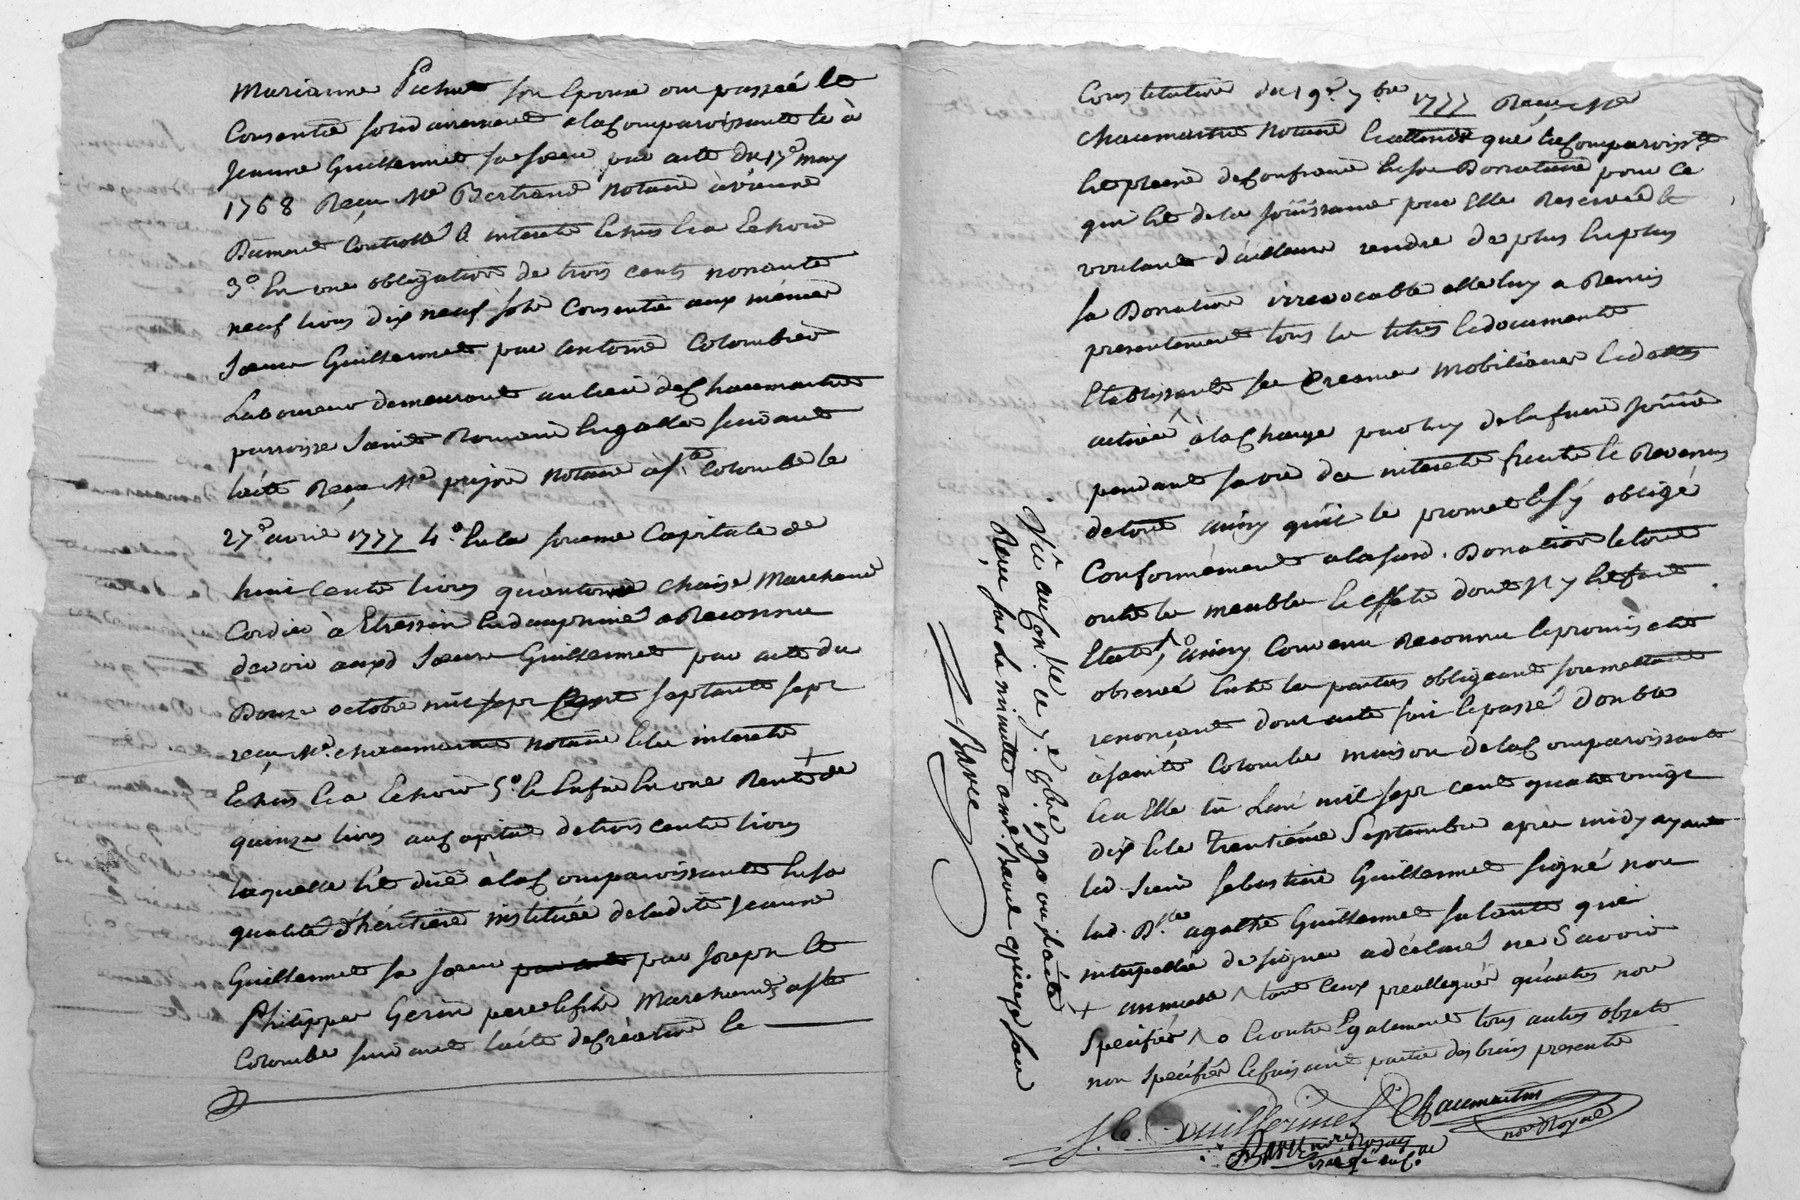 Marianne Pichat son Epouse ont passée et
Consentie solidairement a la Comparoissante et à
Jeanne Guillermet sa soeur par acte du 17e may
1768 Recu Me Bertrand Notaire à vienne
Dument Controllé & interets Echus et a Echoir
3o En une obligation de trois cents nonante
neuf livres dix neuf sols Consentie aux mêmes
Soeurs Guillermet par antoine Colombier
Laboureur demeurant au lieu de Chaumartin
parroisse Saint Romain En galle suivant
lacte Recu Me prijon Notaire à ste Colombe le
27e avril 1777 4o En la somme Capitale de
huit cents livres quantoine chaise Marchand
Cordier à Etressin En dauphiné a Reconnu
devoir auxd Soeurs Guillermet par acte du
Douze octobre mil sept Cent septante sept
recu Me. chaumartin notaire Et les interets
Echus et a Echoir 5o Et Enfin En une Rente + de
quinze livres au Capital de trois cents livres
laquelle Est düe à la Comparoissante En sa
qualité d'héritière instituée de ladite Jeanne
Guillermet sa soeur par acte par Joseph et
Philippe Gerin pere et fils Marchands a ste
Colombe suivant l'acte de Création le
Constitution du 19e 7bre 1777 Recu Me
chaumartin Notaire Et attendu que la Comparoissante
Est pleine de Confiance En son Donataire pour ce
qui Est de la Joüissance par Elle Reservée Et
voulant d'ailleurs rendre de plus En plus
sa Donation irrevocable elle luy a Remis
presentement tous les titres Et documents
Etablissants ses Creances mobiliaires Et dettes
actives ^ à la Charge par luy de la faire Jouir
pendant sa vie des interets fruits Et Revenus
de tout ainsy qu'il le promet Et s'y obligé
Conformément a la susd. Donation Et tout
outre les meubles Et effets dont Il y Est fait
Etat, ^o ainsy Convenu Reconnu Et promis etre
observé Entre les parties obligeant soumettant
renonçant dont acte fait Et passé double
à Sainte Colombe maison de la Comparoissante
Ce a Elle lu Lan mil sept cent quatre vingt
dix Et le trentieme Septembre après midy ayant
led. Sieur Sebastien Guillermet signé non
lad. Dlle agathe Guillermet sa tante qui
interpellée de signer a déclaré ne Savoir
+ annuelle ^ tant Ceux preallegués qu'autres non
Specifiés ^o Et outre Egalement tous autres objets
non specifiés Et faisant partie des biens presents
S. C. Guillermet Chaumartin
not Royal
Bavet nore Royal
Vü au Con.lle ce 7e 8bre 1790 ou pacte
Recu sur la minutte a me. Bavet qui est sou
Bavet